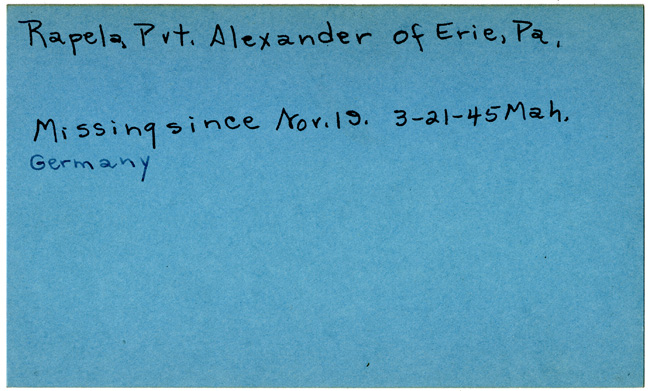 Rapela, Pvt. Alexander of Erie, Pa.
Missing since Nov. 19. 3-21-45 Mah.
Germany